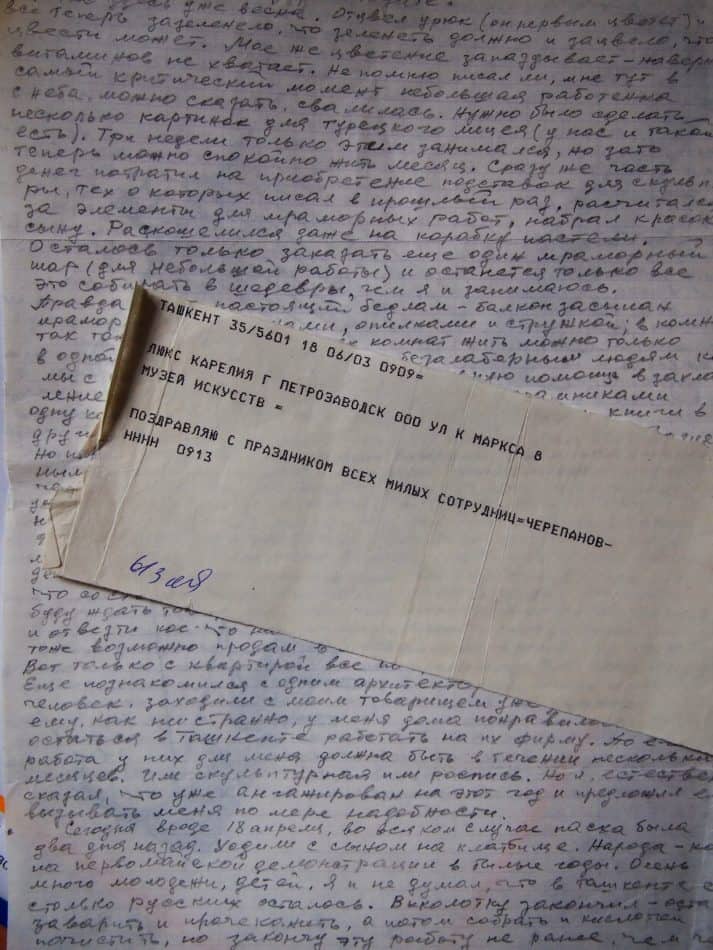 уже весна. Отцвел урюк (он первым цветет) и
все теперь зазеленело, что зеленеть должно и зацвело, что
цвести может. Мое же цветение запаздывает - наверн
витаминов не хватает. Не помню писал ли, мне тут в
самый критический момент небольшая работенка
с неба, можно сказать, свалилась. Нужно было сделать
несколько картинок для турецкого лицея (у нас и такой
есть). Три недели только этим занимался, но зато
теперь можно спокойно жить месяц. Сразу же часть
денег потратил на приобретение подставок для скульп
ры, тех о которых писал в прошлый раз, рассчитался
за элементы для мраморных работ, набрал красок
сыну. Раскошелился даже на коробку пастели.
Осталось только заказать еще один мраморный
шар (для небольшой работы) и останется только все
это собирать в шедевры, чем я и занимаюсь.
Правда настоящий бедлам - балкон засыпан
мрамор ами, опилками и стружкой, в комн
так т комнат жить можно только
в одной безалаберным людям
мы с помощь в захла
ление
одну к книги в
други
ТАШКЕНТ 35/5601 18 06/03 0909=
ЛЮКС КАРЕЛИЯ Г ПЕТРОЗАВОДСК ООО УЛ К МАРКСА 8
МУЗЕЙ ИСКУССТВ =
ПОЗДРАВЛЯЮ С ПРАЗДНИКОМ ВСЕХ МИЛЫХ СОТРУДНИЦ=ЧЕРЕПАНОВ-
НННН 0913
что со ст
буду ждать то
и отвезти кое-что на
тоже возможно продам
Вот только с квартирой все по
Еще познакомился с одним архитектор
человек, заходили с моим товарищем
ему, как ни странно, у меня дома понравило
остаться в Ташкенте работать на их фирму. Но
работа у них для меня должна быть в течении нескольких
месяцев. Или скульптурная или роспись. Но я, естествен
сказал, что уже ангажирован на этот год и предложил е
вызывать меня по мере надобности.
Сегодня вроде 18 апреля, во всяком случае пасха была
два дня назад. Ходили с сыном на кладбище. Народа - ка
на первомайской демонстрации в былые годы. Очень
много молодежи, детей. Я и не думал, что в Ташкенте с
столько русских осталось. Выколотку закончил - оста
заварить и прочеканить, а потом собрать и кислотой
почистить, но закончу эту работу не ранее, чем че